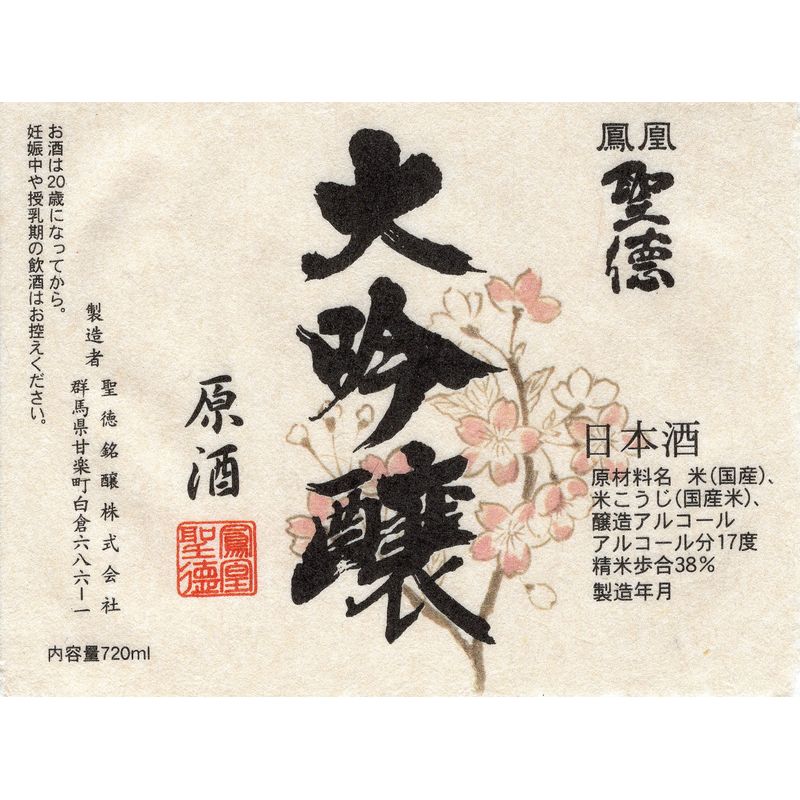 鳳凰
聖徳
大吟醸
日本酒
原材料名　米(国産)、
米こうじ(国産米)、
醸造アルコール
アルコール分17度
精米歩合38%
製造年月
原酒
鳳凰
聖徳
製造者　聖徳銘醸株式会社
群馬県甘楽町白倉六八六ー一
お酒は20歳になってから。
妊娠中や授乳期の飲酒はお控えください。
内容量720ml